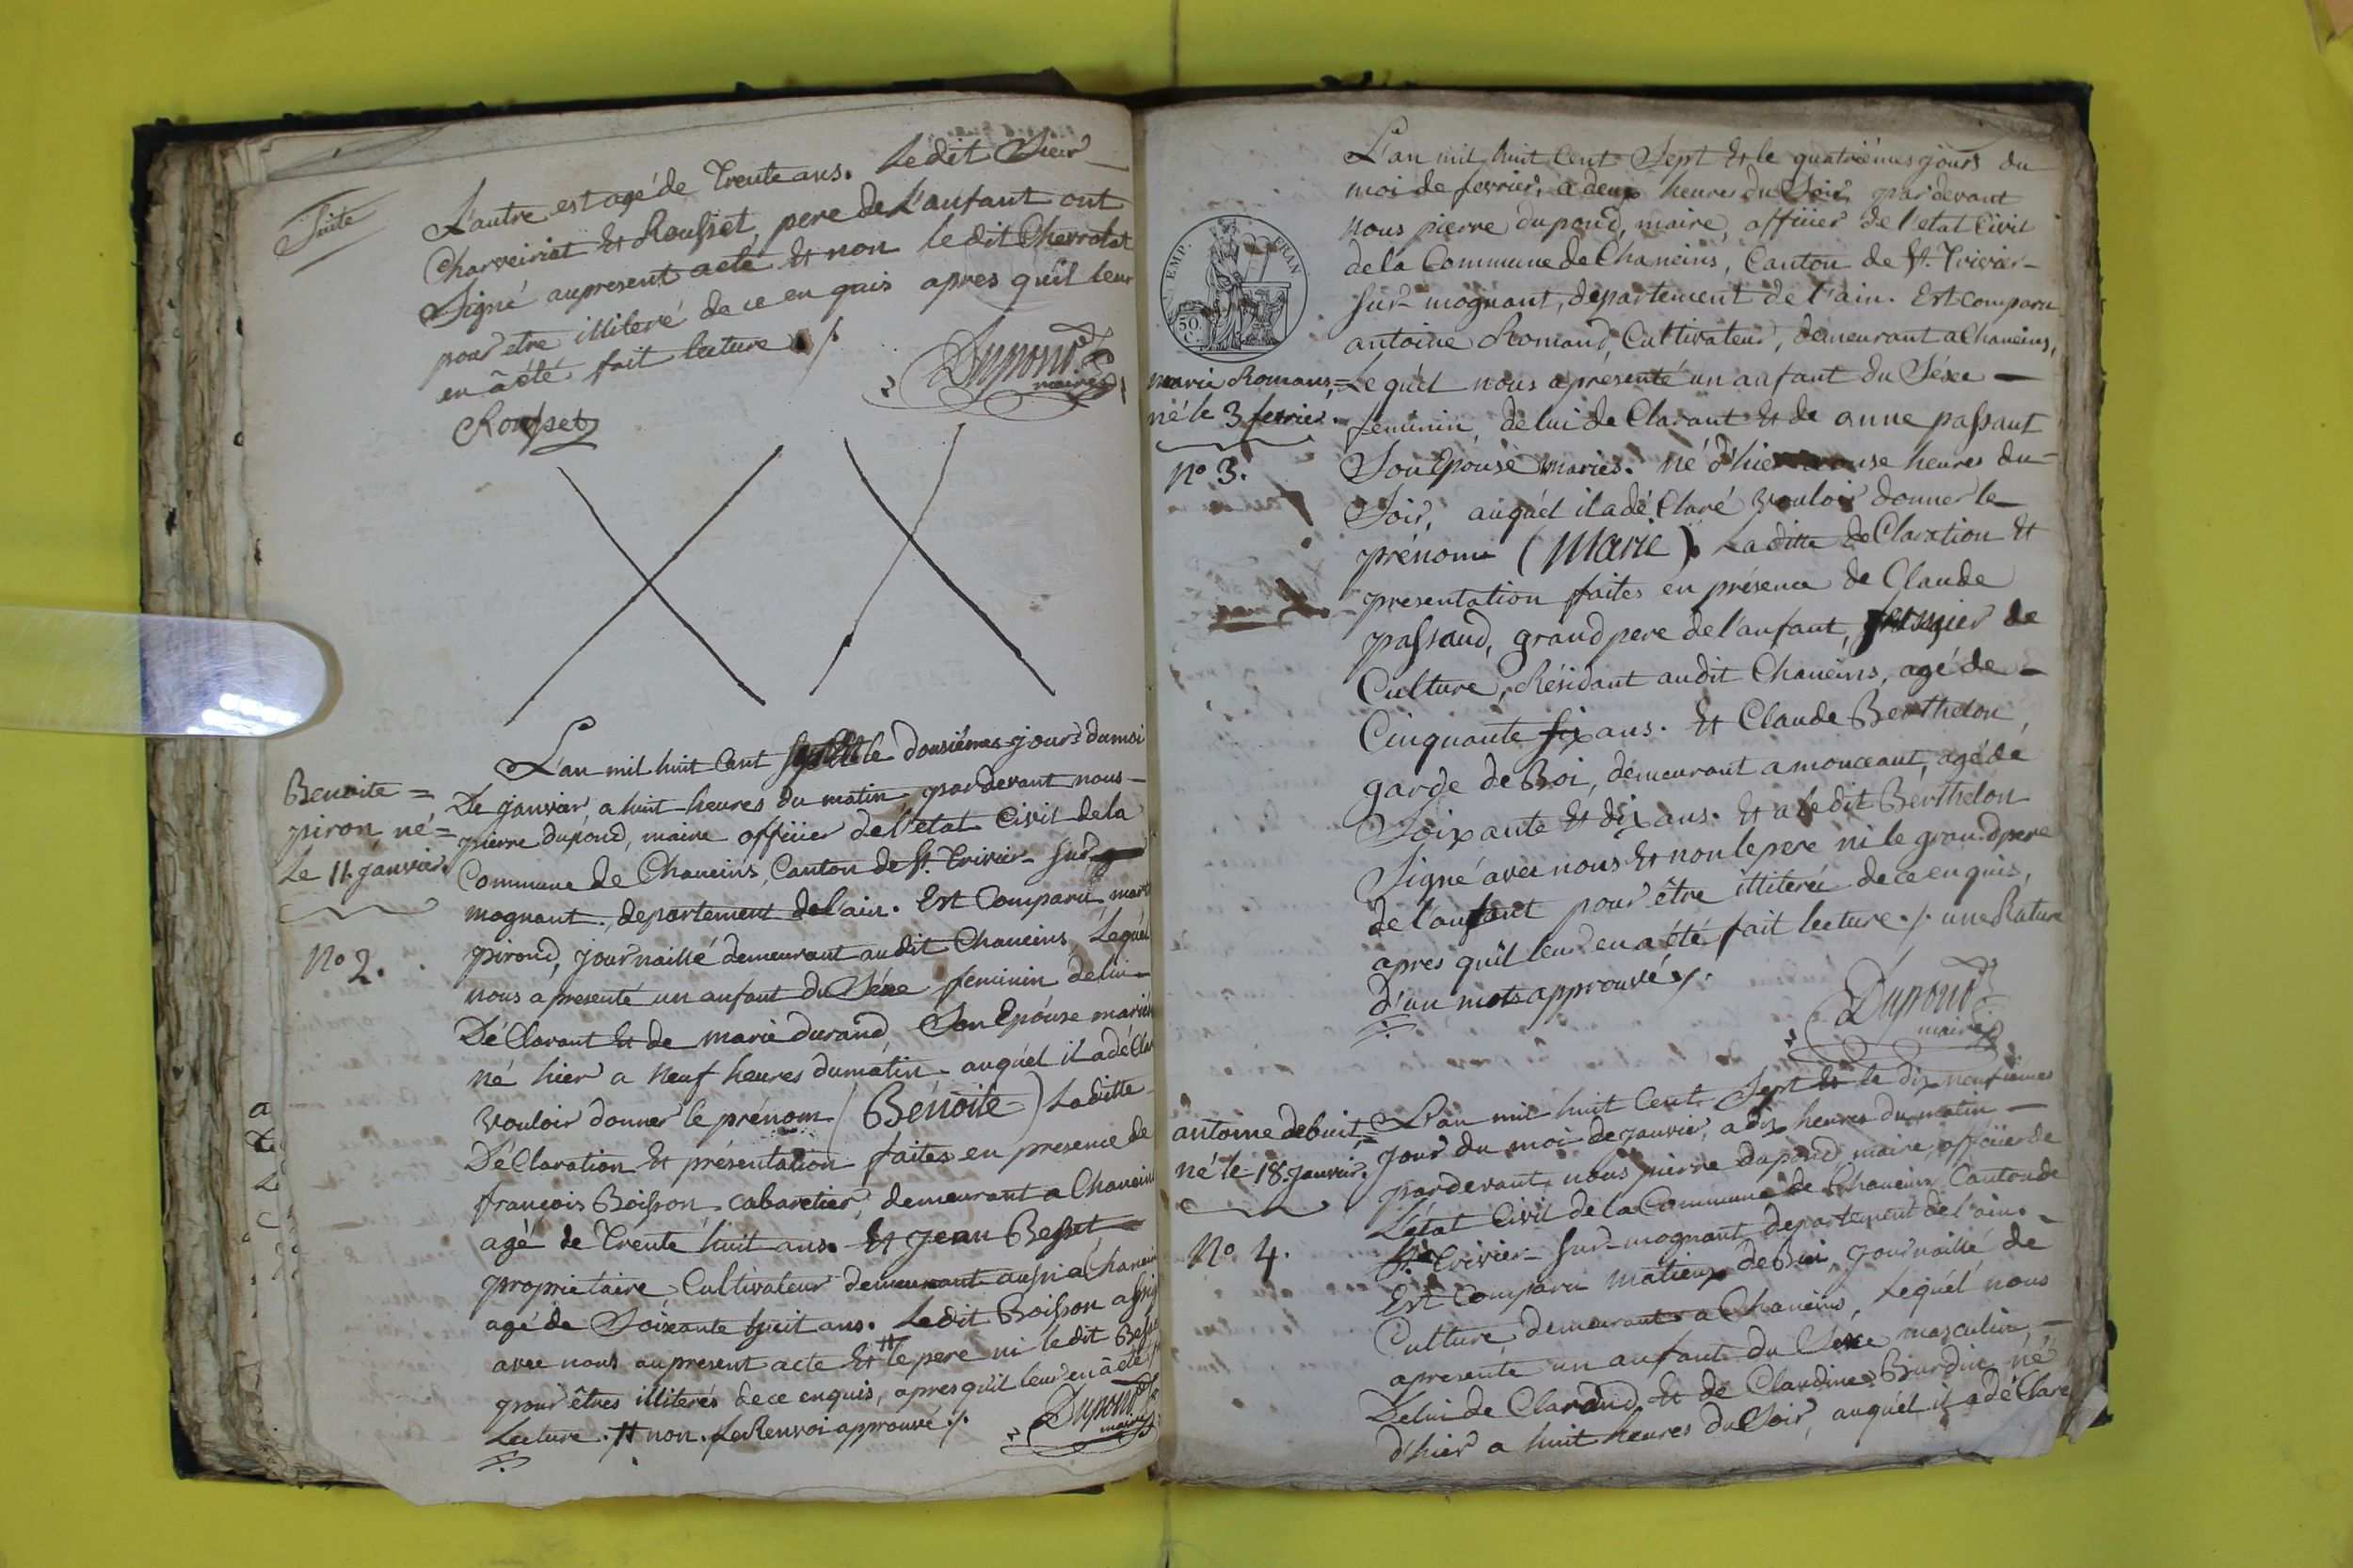 Suite
L'autre est agé de Trente ans. Ledit Sieur
Charveiriat Et Rousset, pere de L'anfant ont
Signé aupresent acte Et non ledit Chevrolat
pour etre illiteré de ce en quis apres qu'il leur
en à été fait lecture ./.
Dupond
maire
Rousset
Benoite =
piron, né =
Le 11. janvier.
No 2.
L'an mil huit Cent Sept Et le dousiémes jours du moi
De janvier a huit heures du matin pardevant nous
pierre dupond, maire officier de l'état Civil de la
Commune de Chaneins, Canton de St. Trivier sur
mognant, departement de l'ain. Est Comparu
pirond, journaillé demeurant audit Chaneins, Lequel
nous a presenté un anfant du Séxe feminin de lui
Dé Clarant Et de marie durand, Son Epouse mariés
né hier a neuf heures dumatin auquél il a dé Clar
vouloir donner le prénom (Benoite) Laditte
Dé Claration Et présentation faites en presence de
françois Boisson cabaretier, demeurant a Chaneins
agé de Trente huit ans. Et Jean Besset
proprietaire Cultivateur demeurant aussi a Chaneins
agé de Soixante huit ans. Ledit Boisson a signé
avec nous aupresent acte Et # le pere ni ledit Besset
pour êtres illiterés de ce enquis, apres qu'il leur en à été
Lecture. # non. Le Renvoi approuvé ./.
Dupond
maire
EMP. FRAN
50. C.
L'an mil huit Cent Sept Et le quatriémes jours du
moi de fevrier, a deux heures du Soir, par devant
nous pierre dupond, maire, officier de l'etat Civil
de la Commune de Chaneins, Canton de St. Trivier
sur mognant, département de l'ain. Est comparu
antoine Romand, Cultivateur, demeurant a Chaneins,
marie Romans, =
né le 3 fevrier.
No 3.
Le quél nous a présenté un anfant du Séxe
feminin, de lui de Clarant Et de anne passaut
Son Epouse mariés. né d'hier a onse heures du
Soir, auquél il a dé Claré vouloir donner le
prénom (Marie). La ditte de Claration Et
presentation faites en présence de Claude
passaud, grand pere de l'anfant, de
Culture, Résidant audit Chaneins, agé de
Cinquante six ans. Et Claude Berthelon,
garde de Boi, demeurant a monceaut, agé dé
Soixante Et dix ans. Et a ledit Berthelon
Signé avec nous Et non le pere ni le grand pere
de l'anfant pour être illiterée de ce enquis,
apres qu'il leur en a été fait lecture ./. une Rature
d'un mots approuvé ./.
Dupond
maire
antoine debuit =
né le 18. janvier.
No 4.
L'an mil huit Cent Sept Et le dix neufiémes
jour du moi de janvier, a dix heures du matin
pardevant nous pierre dupond maire, officier de
L'état Civil de la Commune de Chaneins Canton de
St. Trivier sur mognant departement de l'ain.
Est Comparu matieux deBui, journaillé de
Culture demeurant a Chaneins, Lequél nous
a presenté un anfant du Séxe masculin,
De lui de Clarand Et de Claudine Burdin né
d'hier a huit heures du Soir, auquél il a dé Claré